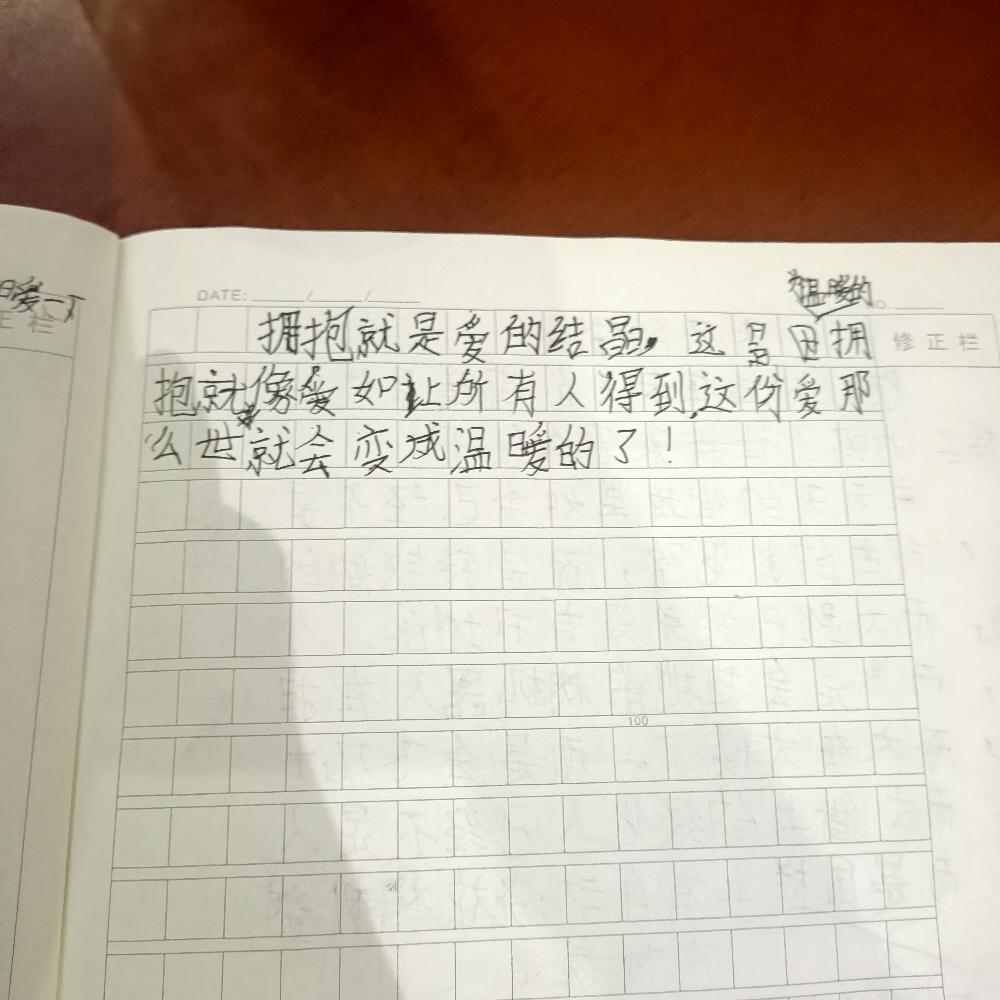 暖一下
正栏
DATE: / /
温暖的。
拥抱就是爱的结晶，这是因拥 修正栏
抱就像爱如让所有人得到这份爱那
么世就会变成温暖的了！
100